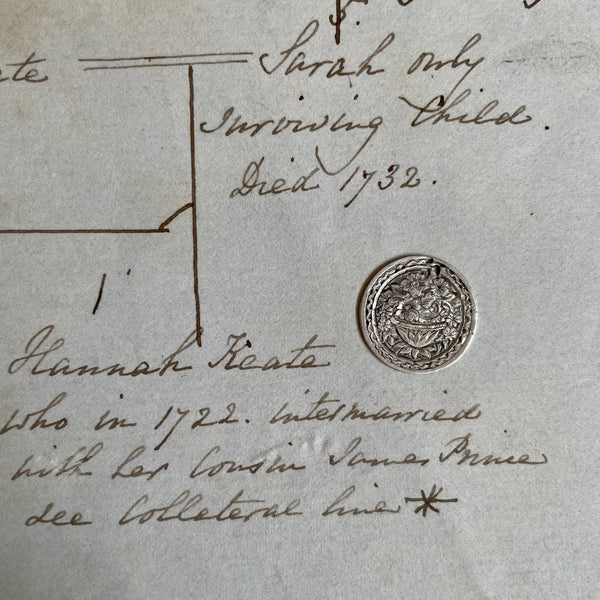 5.
ate
Sarah only
surviving Child.
Died 1732.
1
Hannah Keate
who in 1722. intermarried
with her Cousin James Prince
see Collateral line *